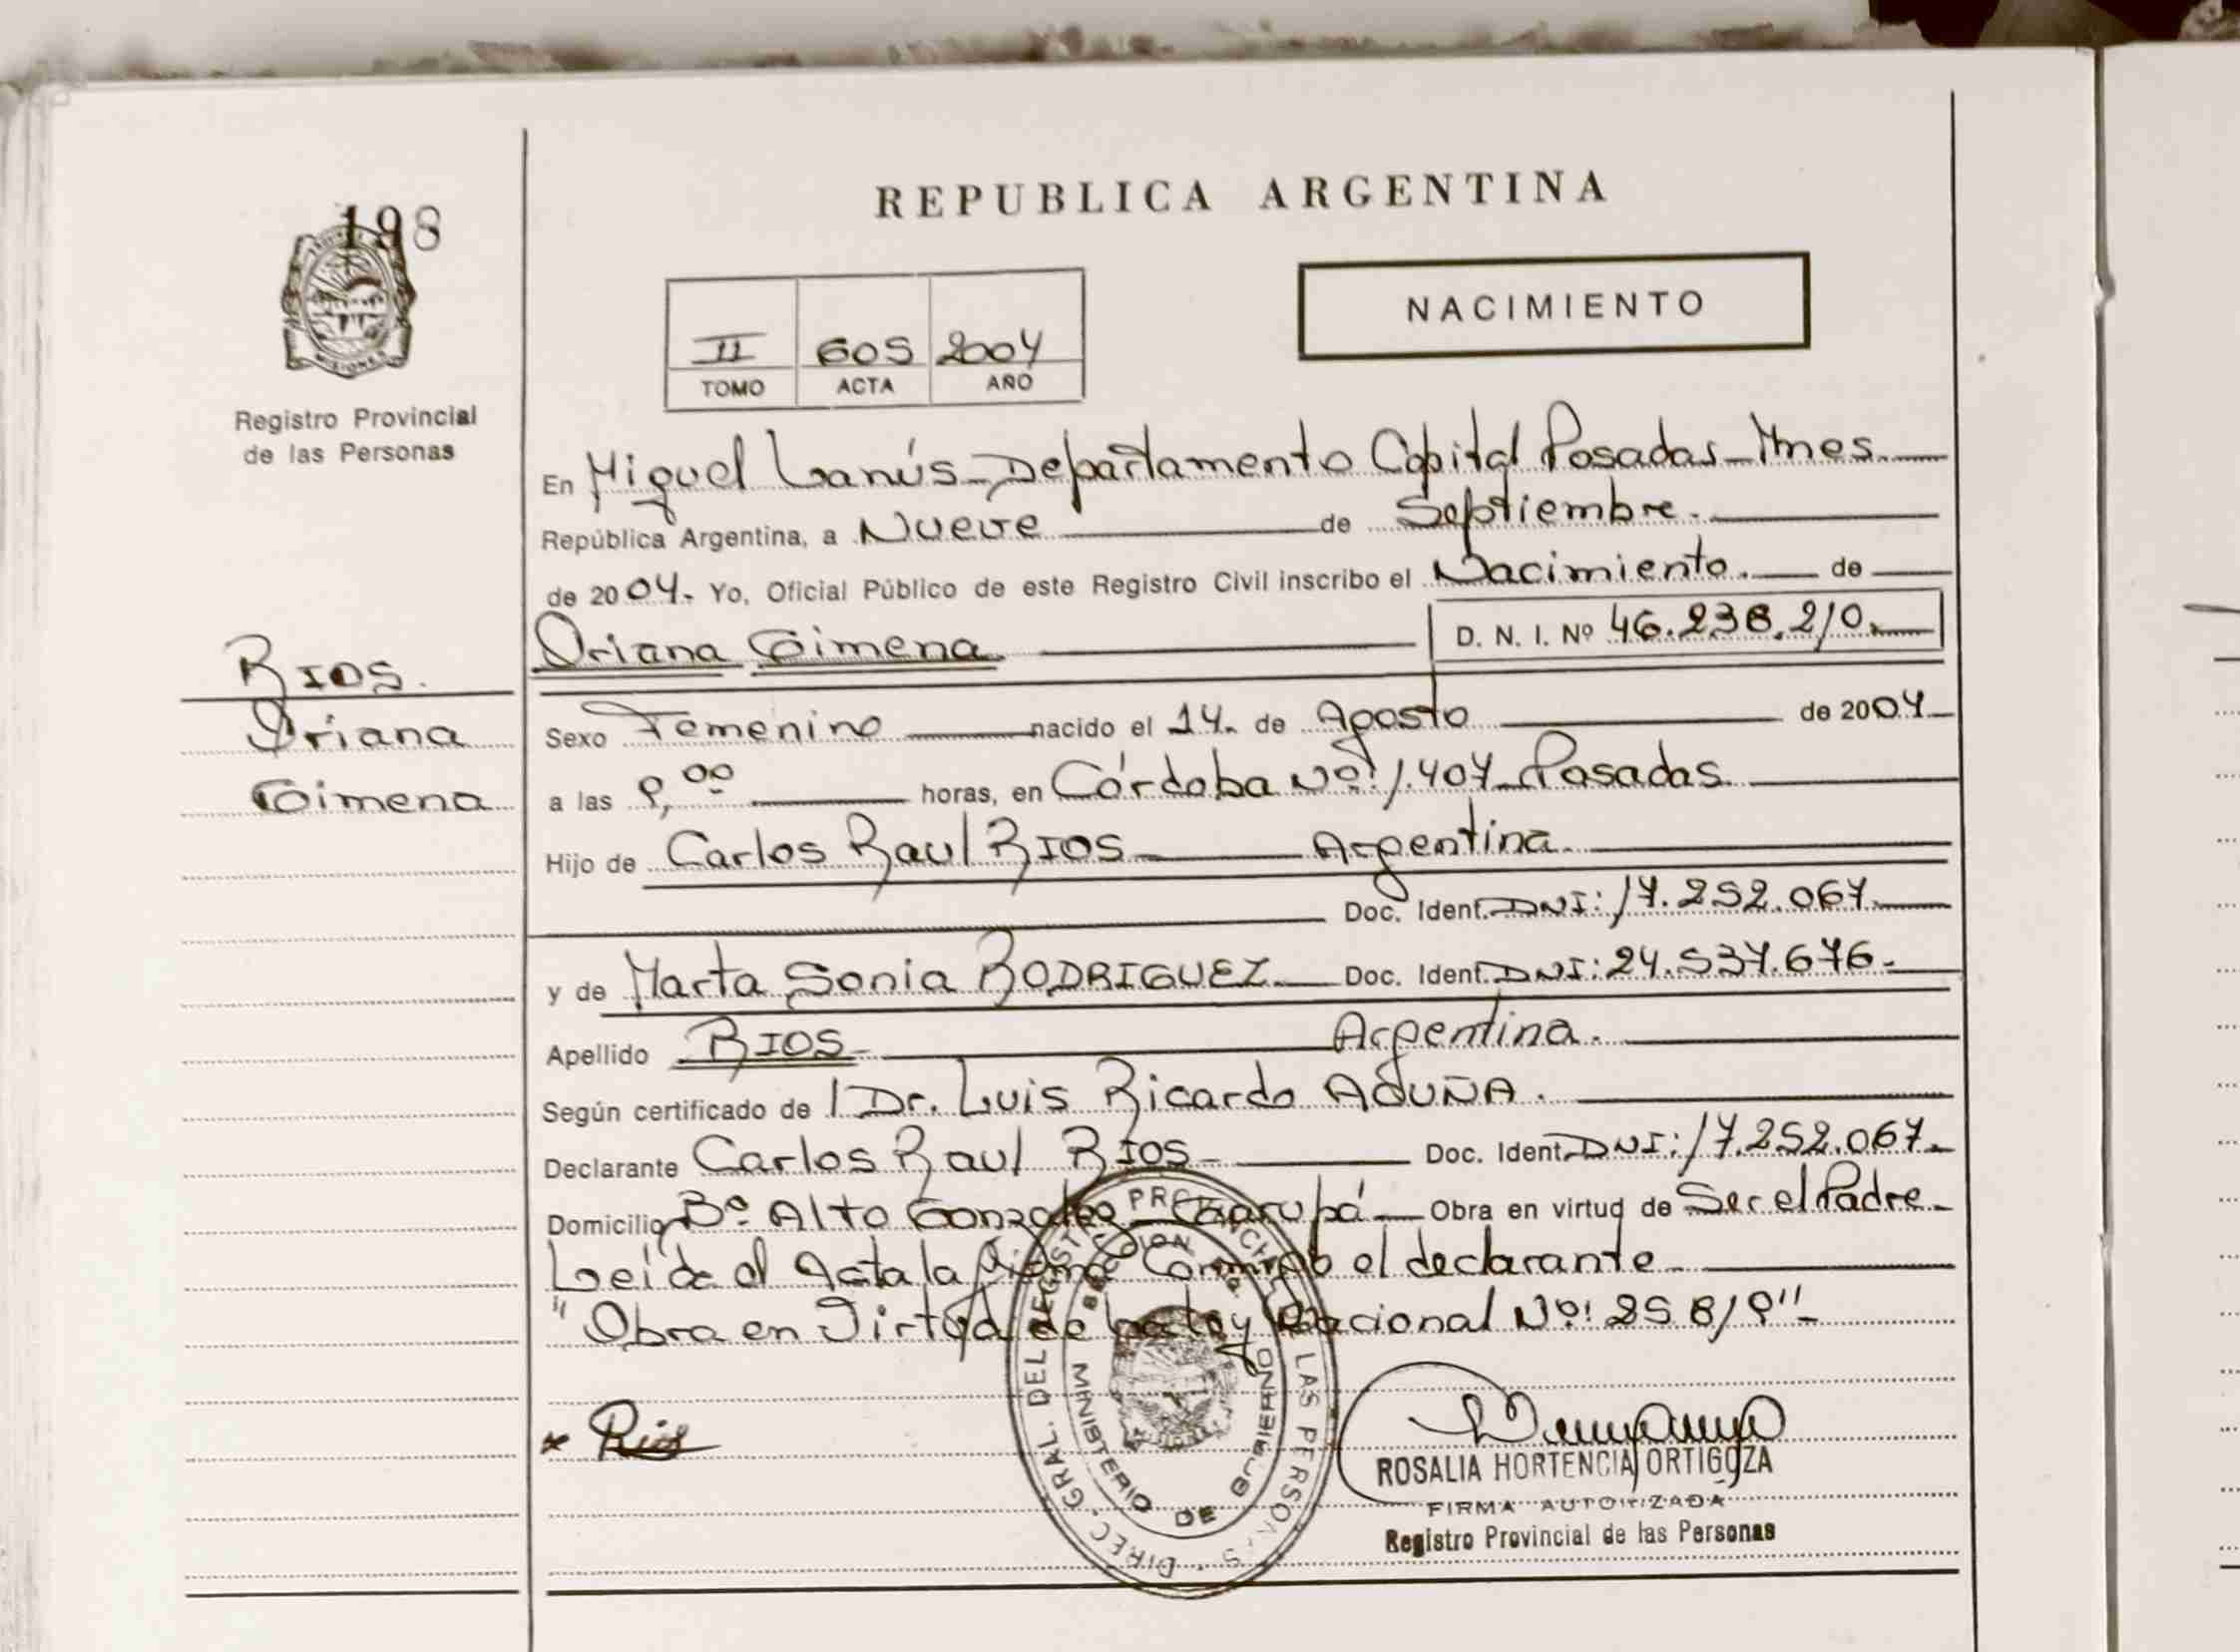 198
REPUBLICA ARGENTINA
NACIMIENTO
II 605 2004
TOMO ACTA AÑO
Registro Provincial
de las Personas
En Miguel Lanús - Departamento Capital Posadas - Mnes.
República Argentina, a Nueve de Septiembre.
de 2004. Yo, Oficial Público de este Registro Civil inscribo el Nacimiento. de
Oriana Gimena D. N. I. Nº 46.238.210.
RIOS.
Oriana
Gimena
Sexo Femenino nacido el 14. de Agosto de 2004
a las 9,00 horas, en Córdoba Nº: 1.407 - Posadas.
Hijo de Carlos Raul RIOS Argentina.
Doc. Ident. DNI: 17.252.067.
y de Marta Sonia RODRIGUEZ. Doc. Ident. DNI: 24.537.676.
Apellido RIOS Argentina.
Según certificado de Dr. Luis Ricardo ACUÑA.
Declarante Carlos Raul RIOS Doc. Ident. DNI: 17.252.067.
Domicilio Bº Alto Gonzalez - Garupá Obra en virtud de Ser el Padre.
Leída el Acta la Firma Conmigo el declarante
"Obra en Virtud de la Ley Nacional Nº: 25.819"
Rios
DIREC. GRAL. DEL REGISTRO PROVINCIAL DE LAS PERSONAS
MINISTERIO DE GOBIERNO
ROSALIA HORTENCIA ORTIGOZA
FIRMA AUTORIZADA
Registro Provincial de las Personas